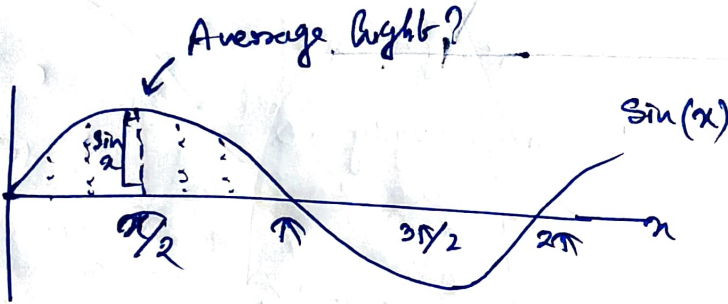 Average hight?
Sin(x)
Sin
x
π/2
π
3π/2
2π
x